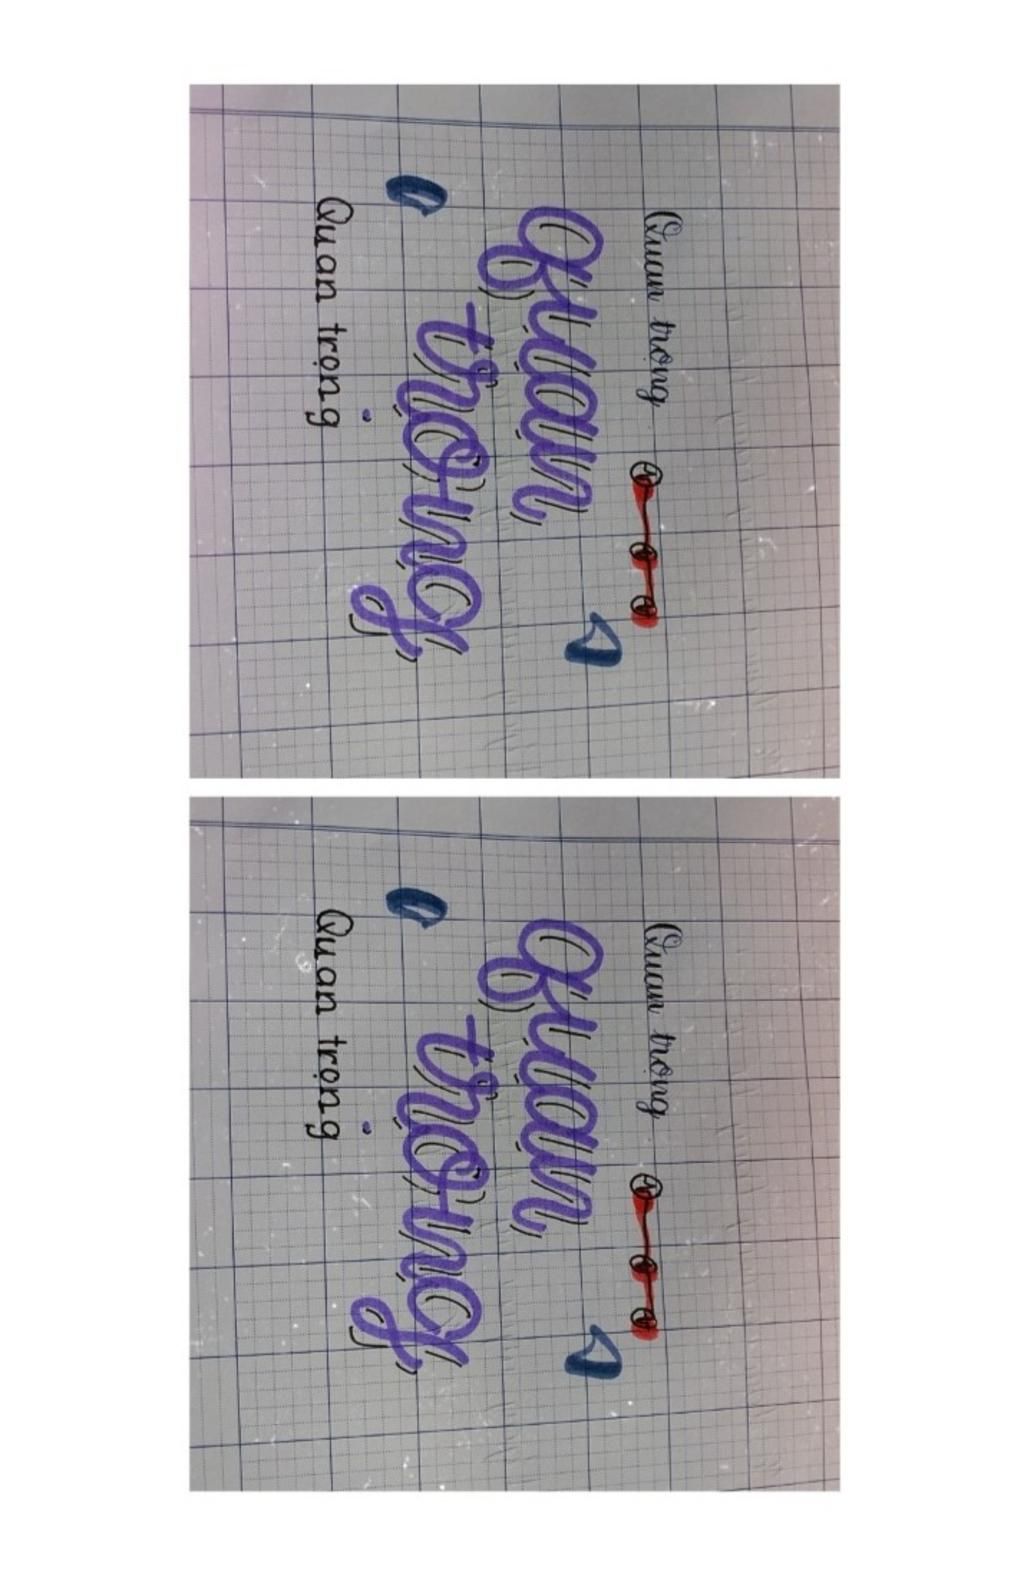 Quan trọng
Quan
trọng
Quan trọng
Quan trọng
Quan
trọng
Quan trọng